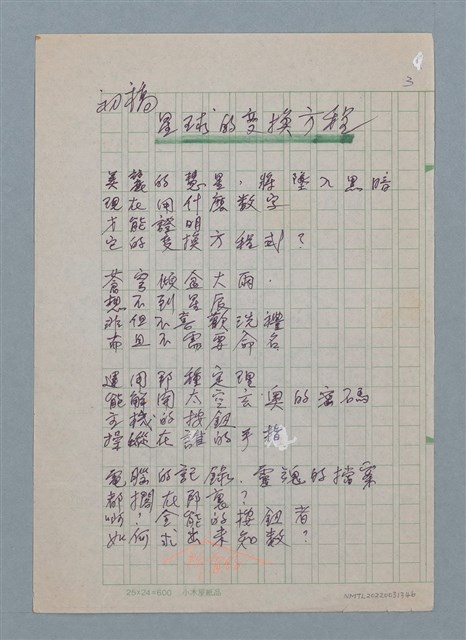 3
初稿
星球的变換方程
美麗的慧星，將墜入黑暗
現在用什麼数字
才能證明
它的变換方程式？
蒼穹傾盆大雨．
想不到星辰
非但不喜歡洗禮
而且不需要命名
運用那種定理
能解開太空玄奥的密碼
玄機的按鈕
操縱在誰的手指
電腦的記錄．靈魂的檔案
都擱在那裏？
啊？全能的按鈕者
如何求出未知数？
25×24=600 小木屋紙品
NMTL20220031346